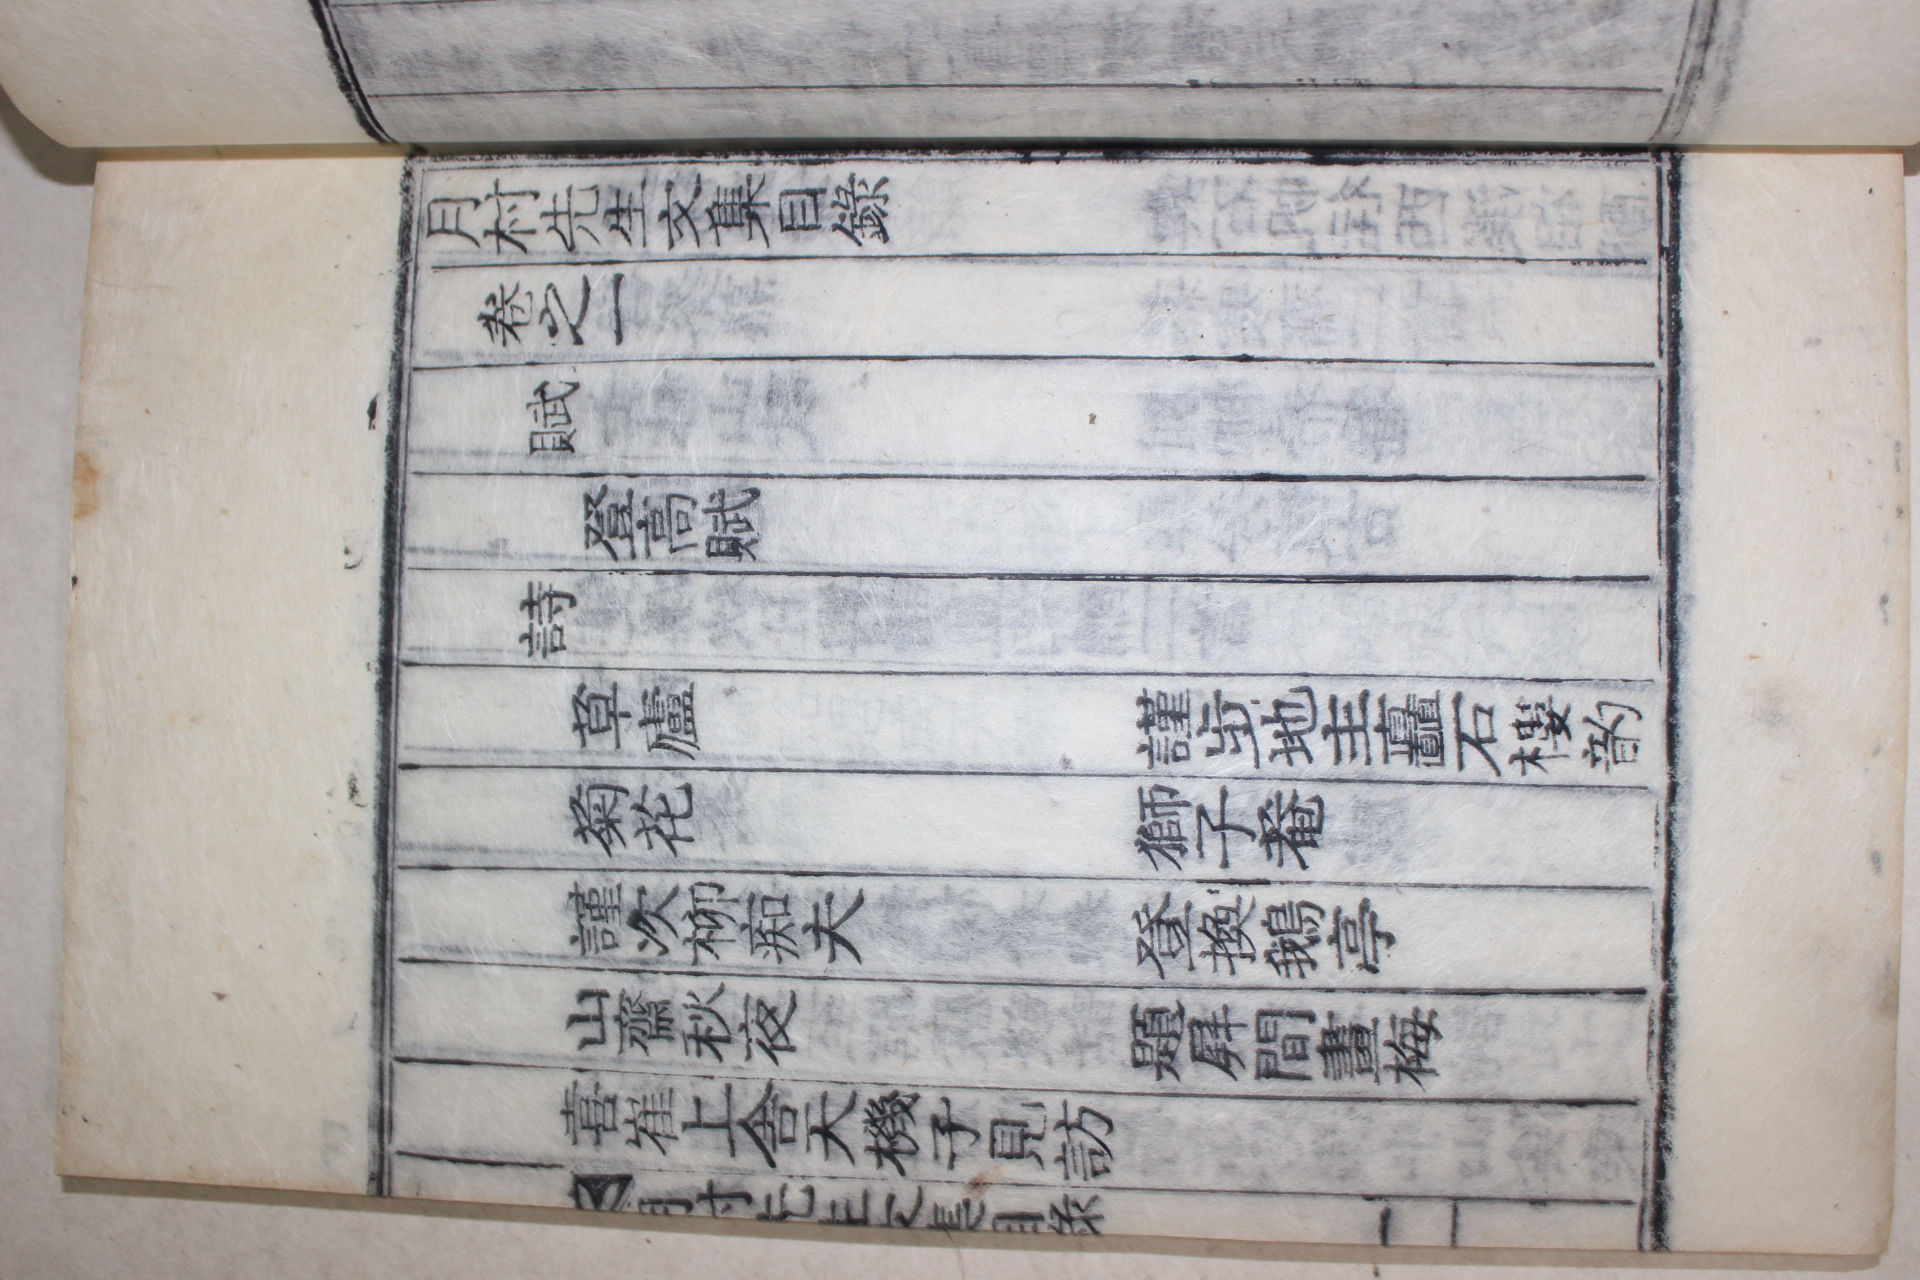 月村先生文集目錄
卷之一
賦
登高賦
詩
草廬　謹步地主矗石樓韵
菊花　獅子菴
謹次柳痴夫　登換鵝亭
山齋秋夜　題屛間畫梅
喜崔上舍天機子見訪
月村先生文集目錄